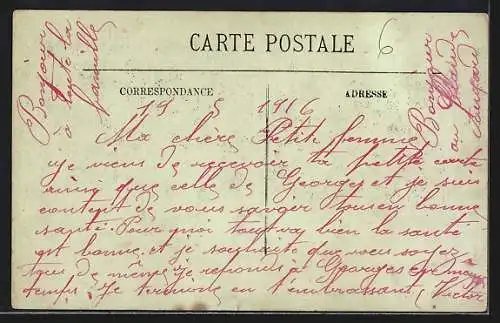 CARTE POSTALE
6
CORRESPONDANCE
ADRESSE
19 5 1916
Ma chère Petite femme
je viens de recevoir ta petite carte
ainsi que celle de Georges et je suis
content de vous savoir tous en bonne
santé. Pour moi tout va bien la santé
est bonne, et je souhaite que vous soyez
tous de même. je réponds à Georges en même
temps. Je termine en t'embrassant, Victor
Bonjour
à toute la
famille
Bonjour
au